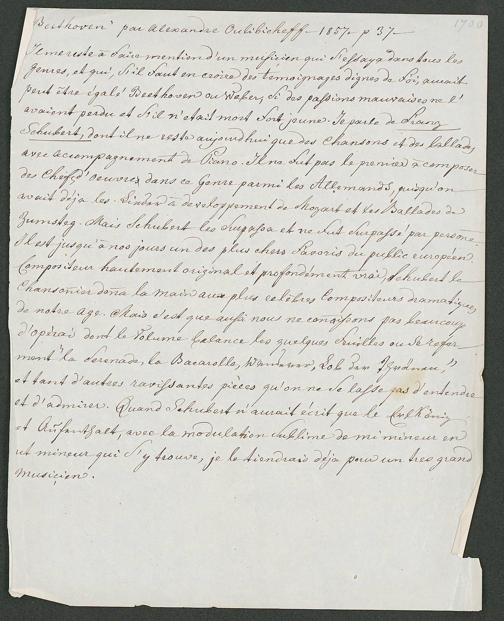 1730
Beethoven par Alexandre Oulibicheff - 1857 - p 37 -
Il me reste à faire mention d'un musicien qui s'essaya dans tous les
genres, et qui, s'il faut en croire des témoignages dignes de foi, aurait
peut être égalé Beethoven ou Weber, si des passions mauvaises ne l'
avaient perdu et s'il n'était mort fort jeune. Je parle de Franz
Schubert, dont il ne reste aujourd'hui que des Chansons et des ballades
avec accompagnement de Piano. Il ne fut pas le premier à composer
des Chefs d'oeuvre dans ce Genre parmi les Allemands, puisqu'on
avait déja les Lieder à developpement de Mozart et les Ballades de
Zumsteg. Mais Schubert les surpassa et ne fut surpassé par personne.
Il est jusqu'à nos jours un des plus chers favoris du public européen.
Compositeur hautement original et profondément vrai, Schubert le
Chansonier dona la main aux plus celèbres Compositeurs dramatiques
de notre age. Mais c'est que aussi nous ne connaissons pas beaucoup
d'opéras dont le volume balance les quelques feuilles ou se refer-
ment "la Serenade, la Bacarolle, Wanderer, Lob der Thränen,"
et tant d'autres ravissantes pièces qu'on ne se lasse pas d'entendre
et d'admirer. Quand Schubert n'aurait écrit que le Erlkönig
et Aufenthalt, avec la modulation sublime de mi mineur en
ut mineur qui s'y trouve, je le tiendrais déja pour un tres grand
musicien.